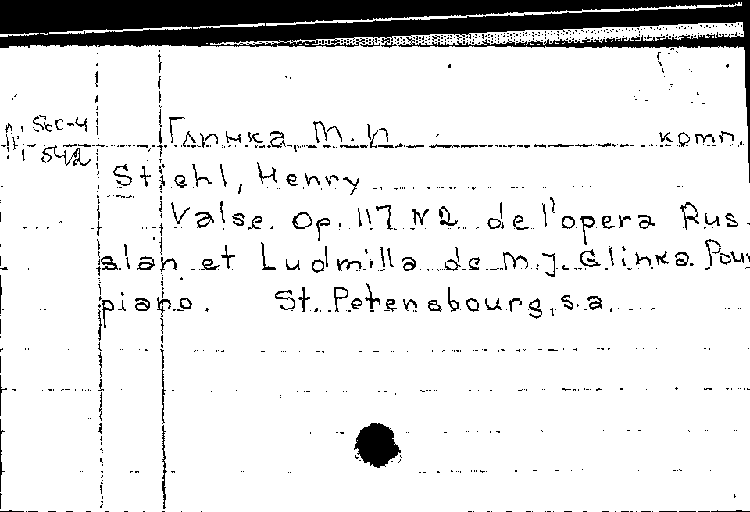 Глинка, М. И. комп.
Stiehl, Henry
Valse. Op. 117 N 2 de l'opera Rus-
slan et Ludmilla de M. J. Glinka. Pour
piano. St. Petersbourg, s.a.